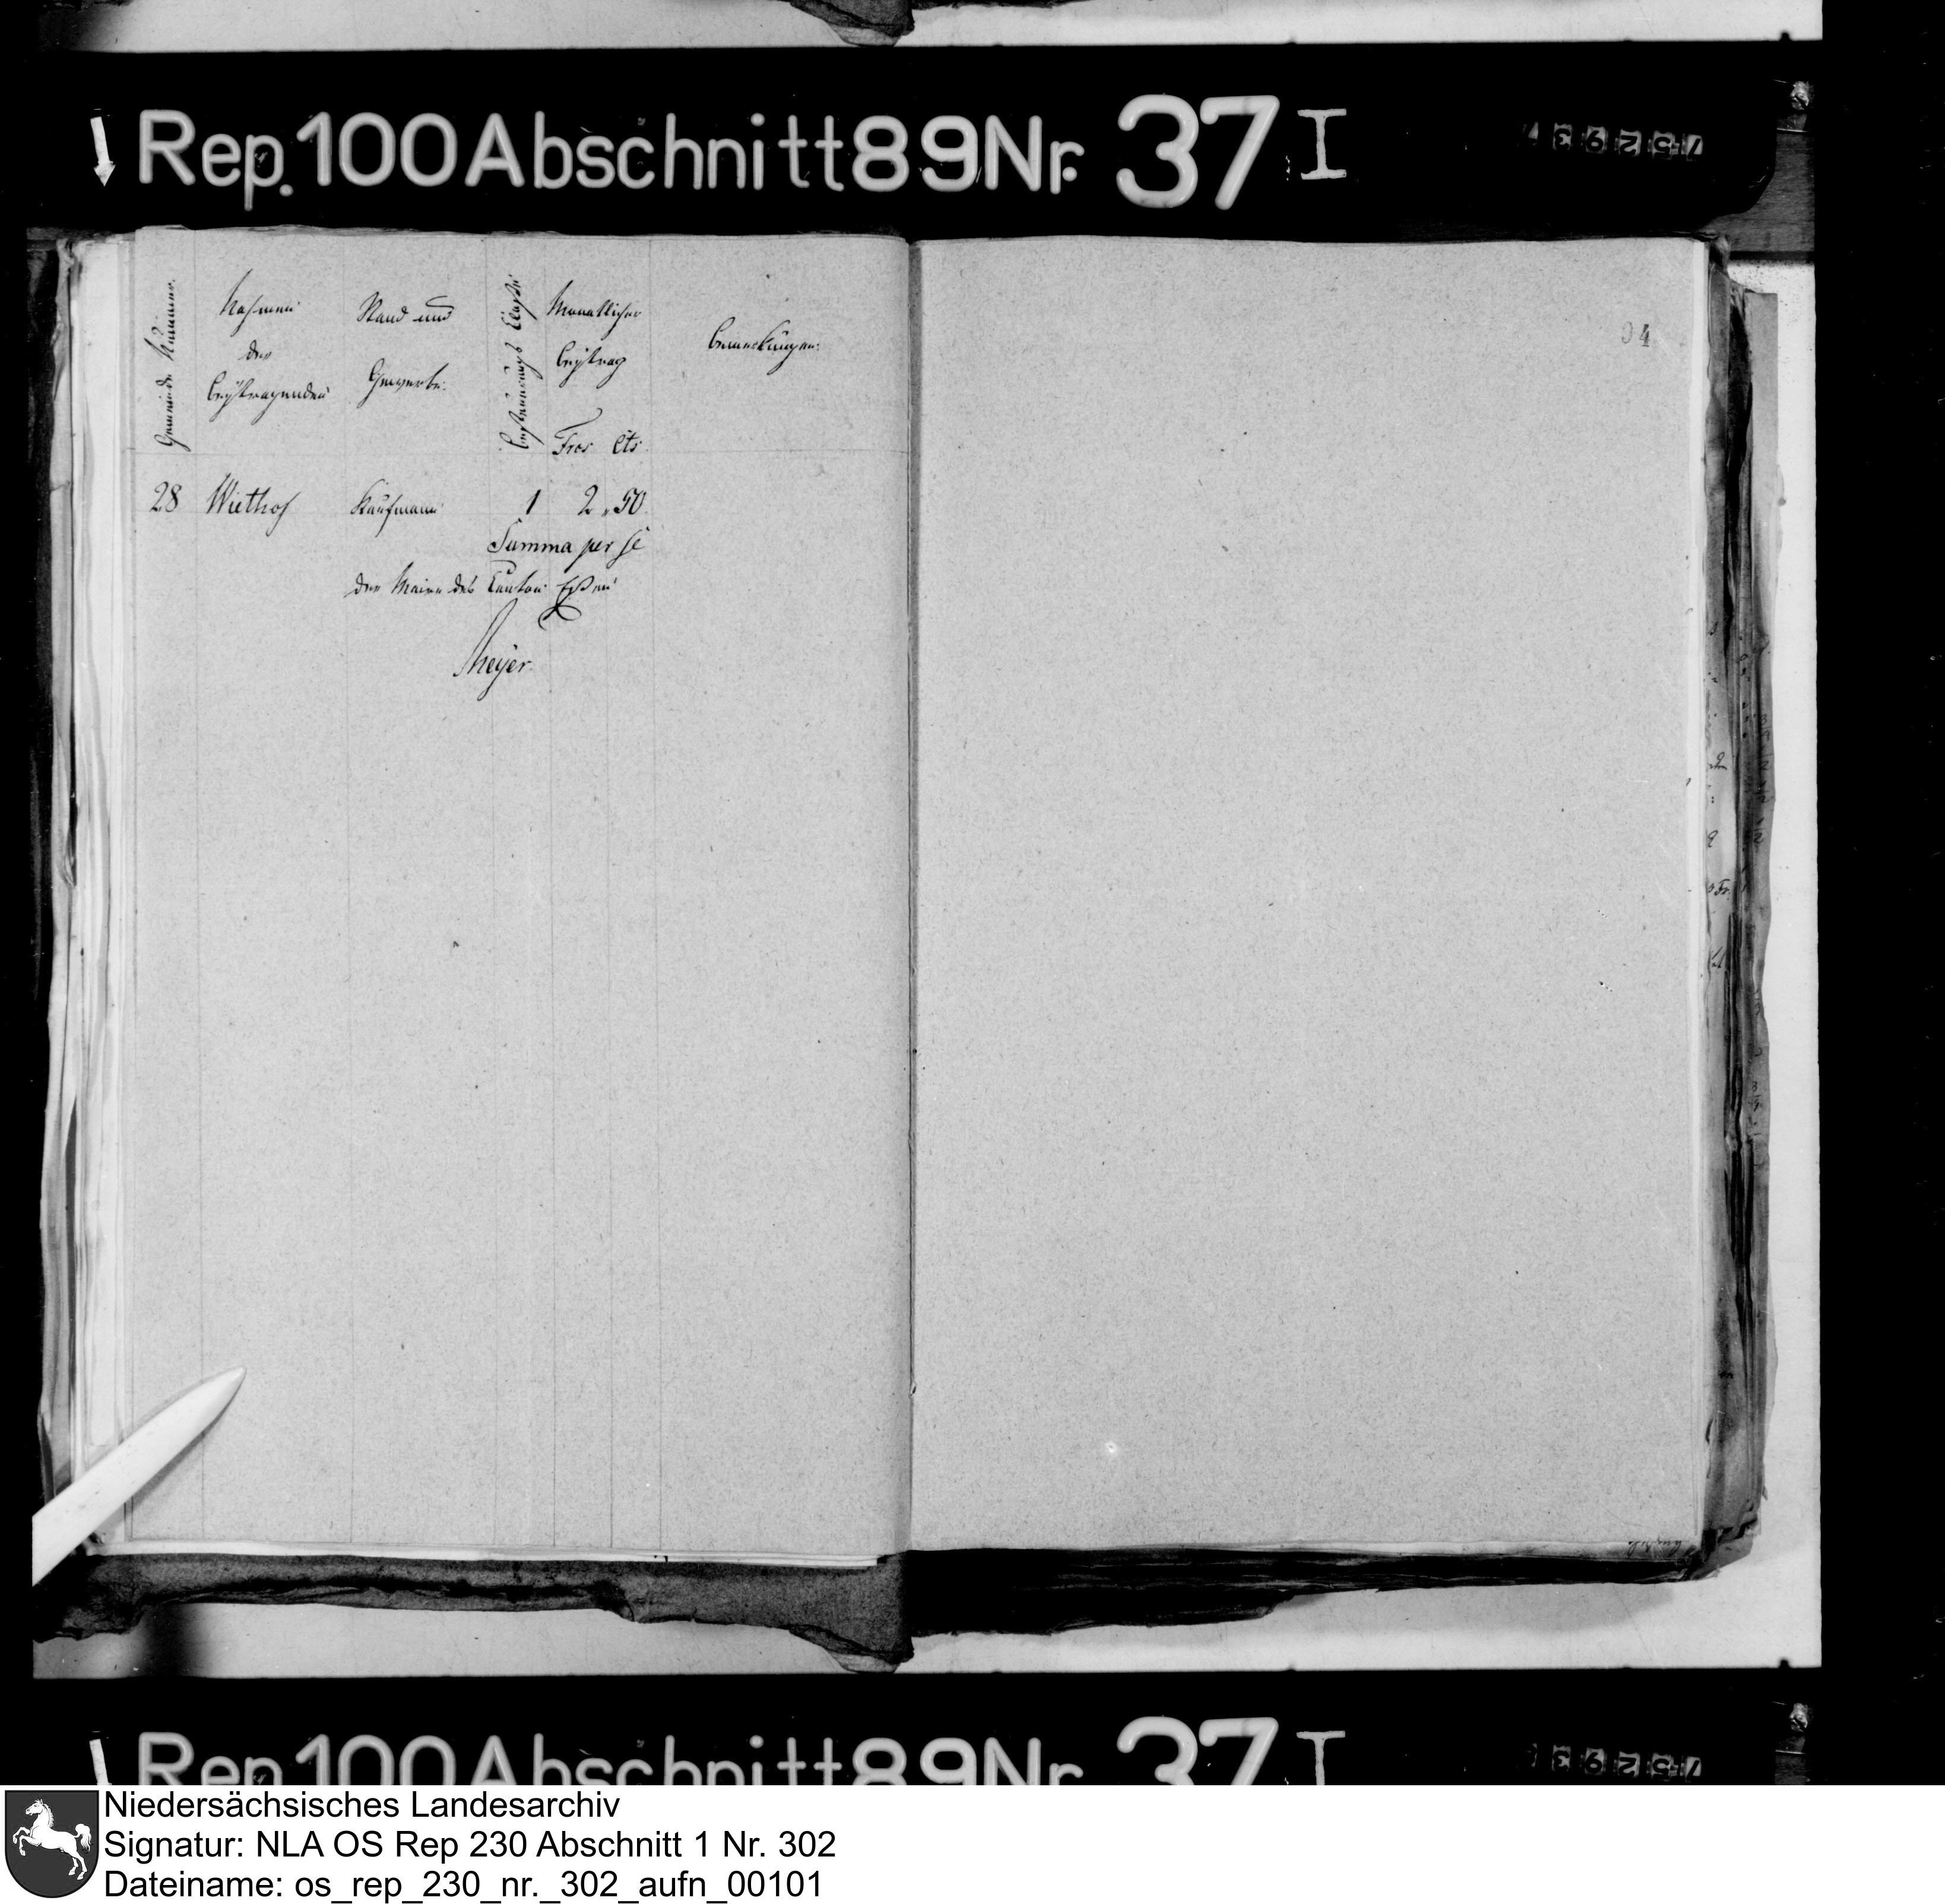 Rep. 100 Abschnitt 89 Nr. 37 I
Gemeinde Nummer.
Nahmen
der
beÿtragenden
Stand und
Gewerbe.
Besteurungs Classe
Monatlicher
beÿtrag
Frcs Cts
Bemerkungen.
94
28 Wiethof Kaufmann 1 2 „ 50.
Summa per se
Der Maire des Canton Eßen
Meyer.
Rep. 100 Abschnitt 89 Nr. 37 I
Niedersächsisches Landesarchiv
Signatur: NLA OS Rep 230 Abschnitt 1 Nr. 302
Dateiname: os_rep_230_nr._302_aufn_00101